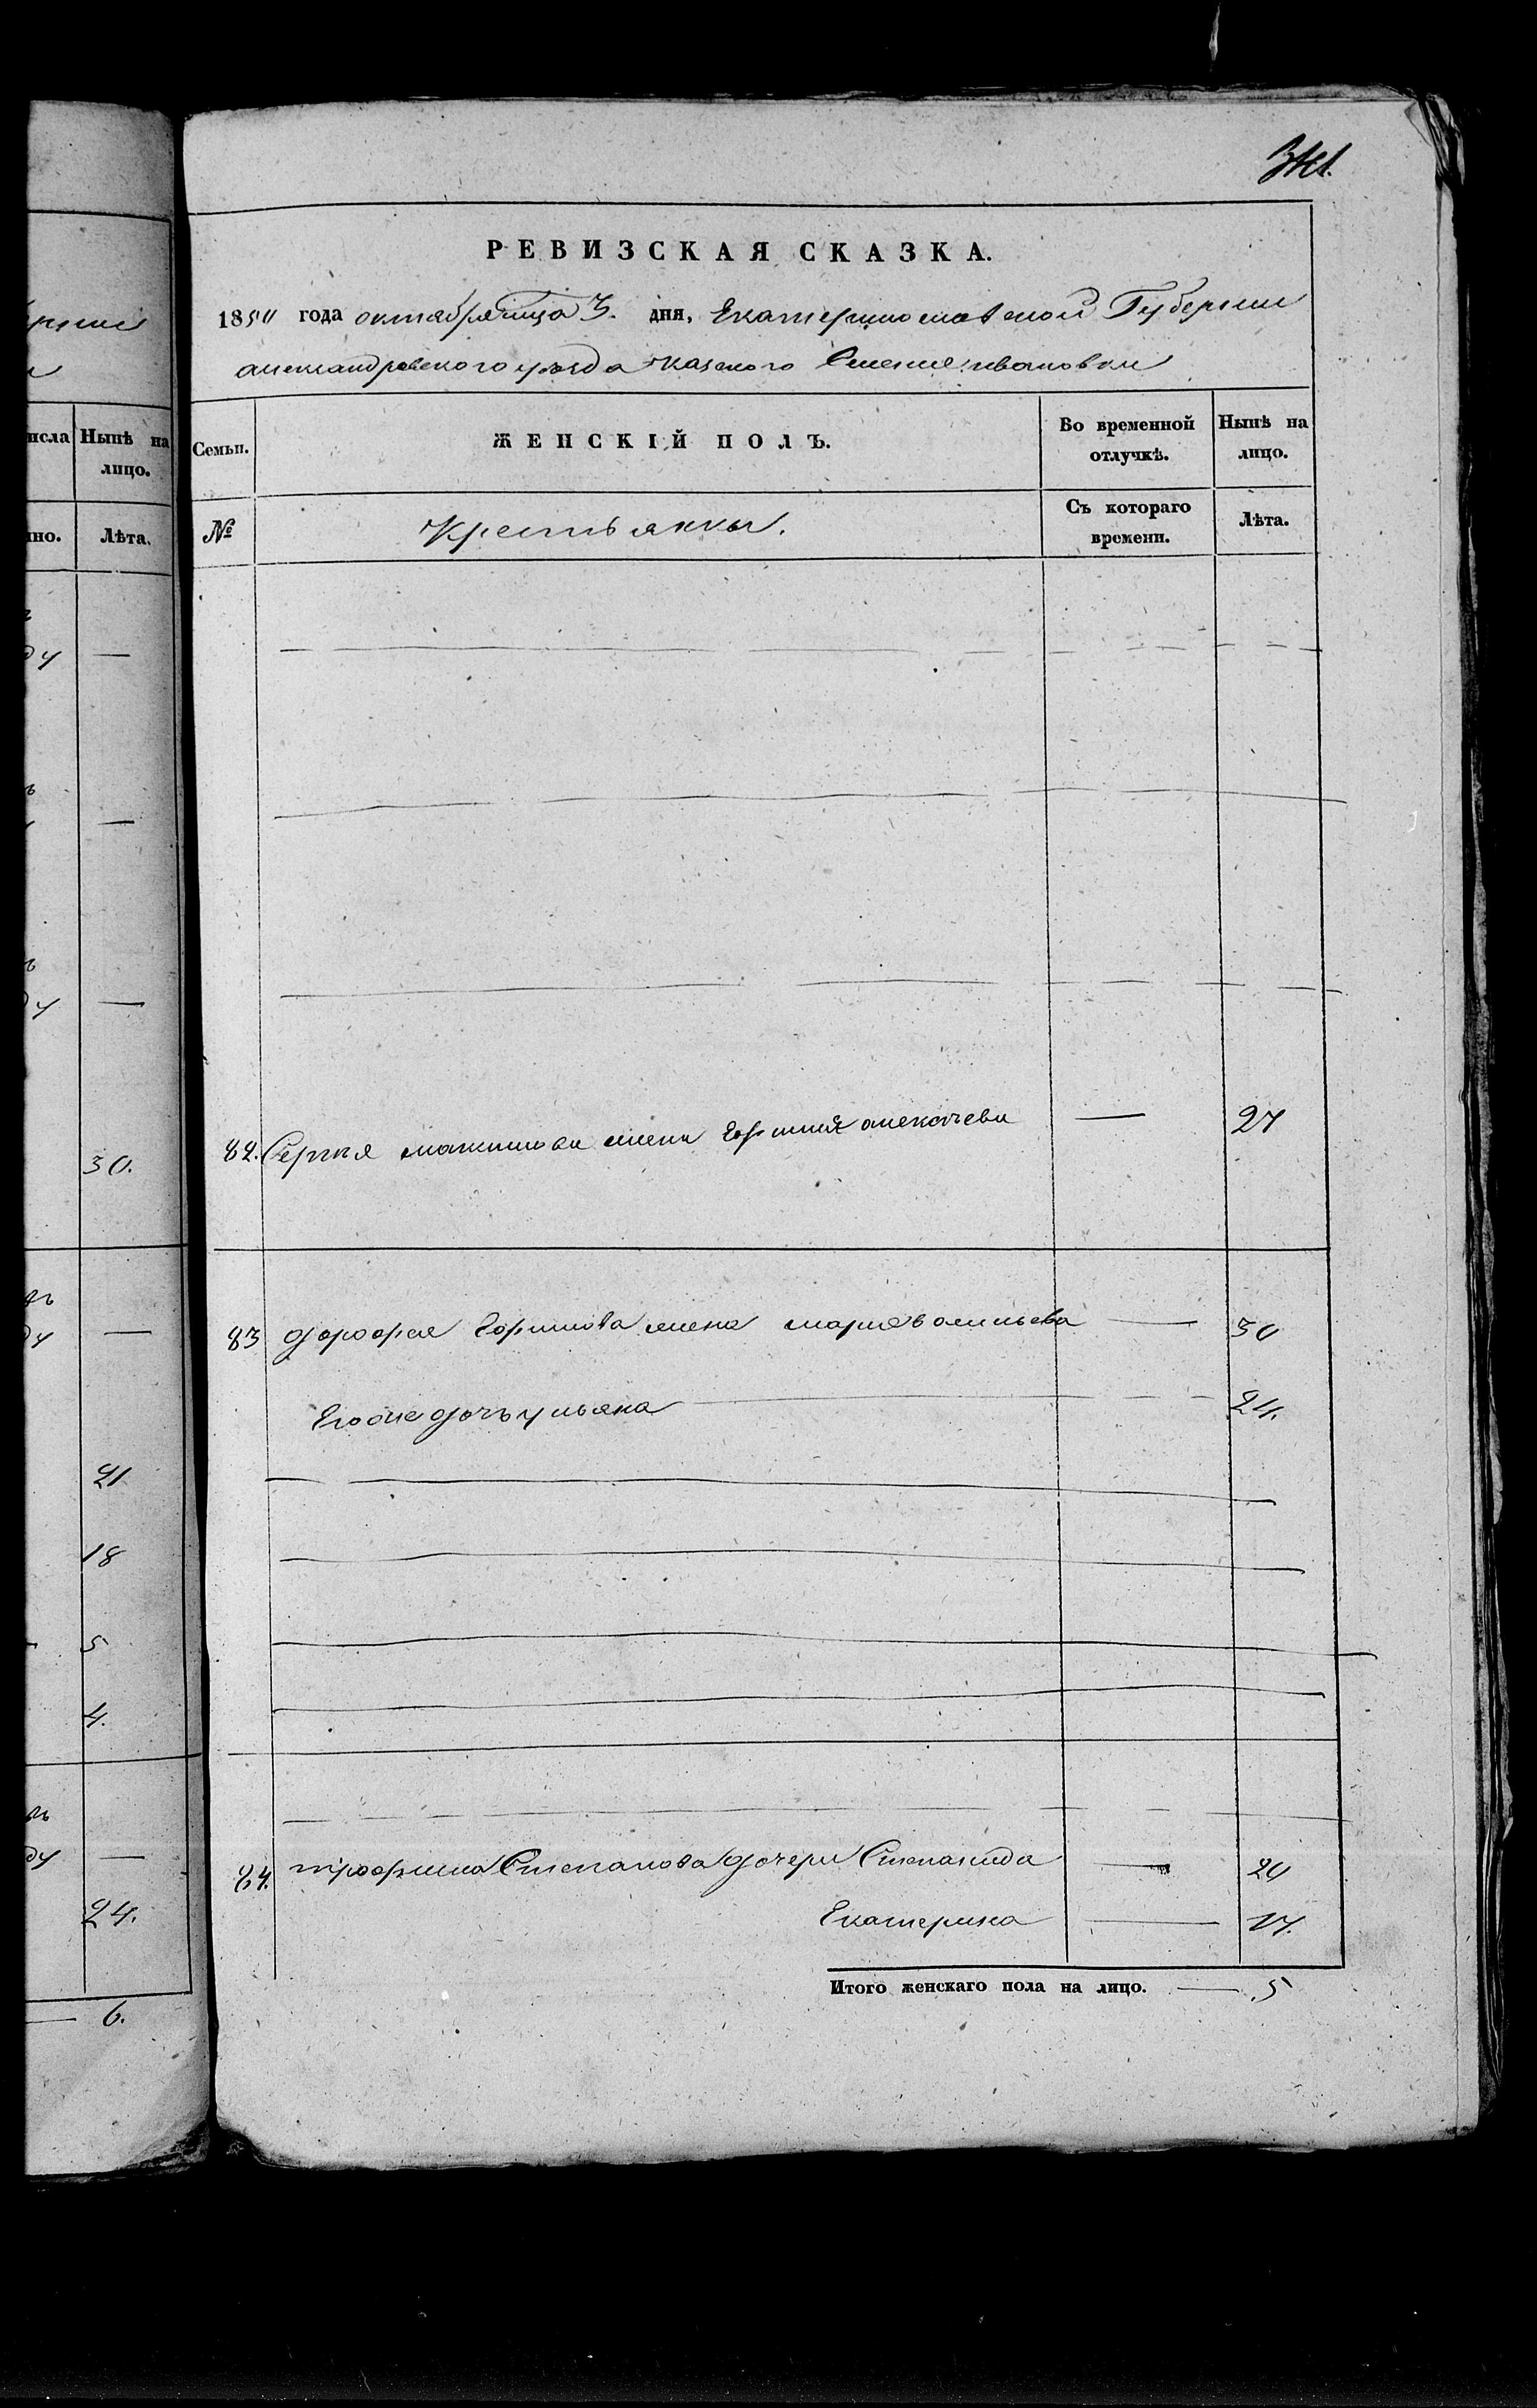 РЕВИЗСКАЯ СКАЗКА.
1850 года октября мца 3. дня, Екатеринославской Губернии
александровского уезда казеного Ивановки
Семьи. ЖЕНСКІЙ ПОЛЪ. Во временной отлучкѣ. Нынѣ на лицо.
№ Крестьянки. Съ котораго времени. Лѣта.
82. Сергея максимова жена Ефимия алексеева — 27
83 дорофея Ефимова жена мария васильева — 30
Егоже дочь ульяна 24.
84. трофима Степанова дочери Степанида — 20
Екатерина — 17.
Итого женскаго пола на лицо. — 5
исла Нынѣ на лицо.
но. Лѣта.
30.
21
18
5
4.
24.
6.